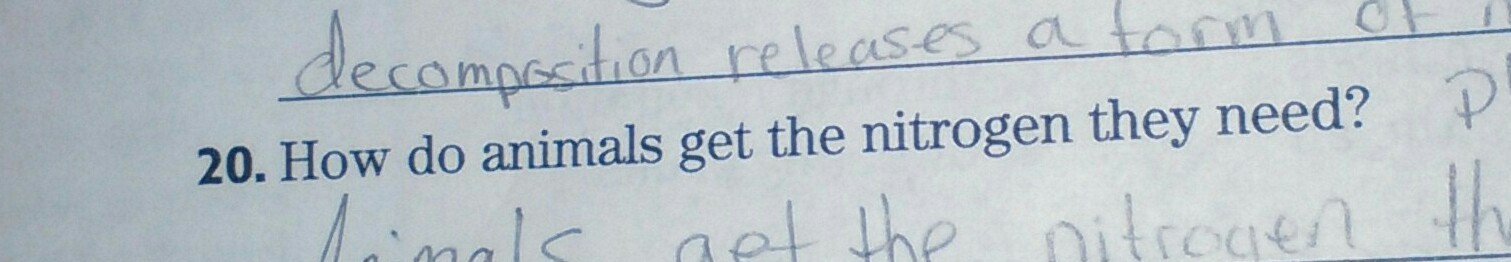 decomposition releases a form of
20. How do animals get the nitrogen they need?
Animals get the nitrogen